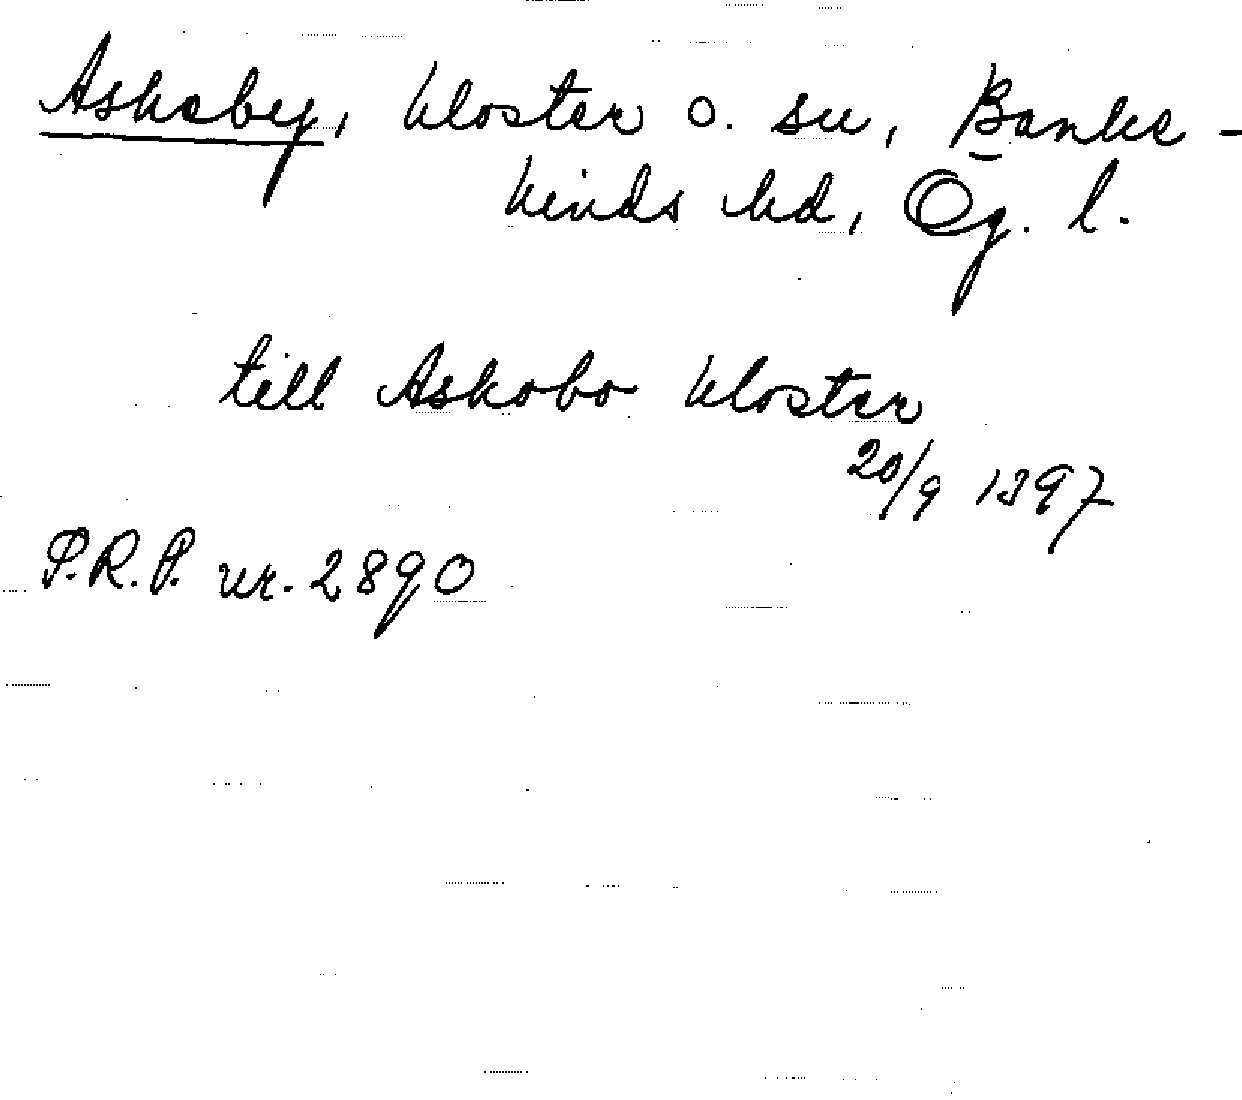 Askeby, kloster o. sn, Banke-
kinds hd, Ög. l.
till Askobo kloster
20/9 1397
P.R.P. nr. 2890